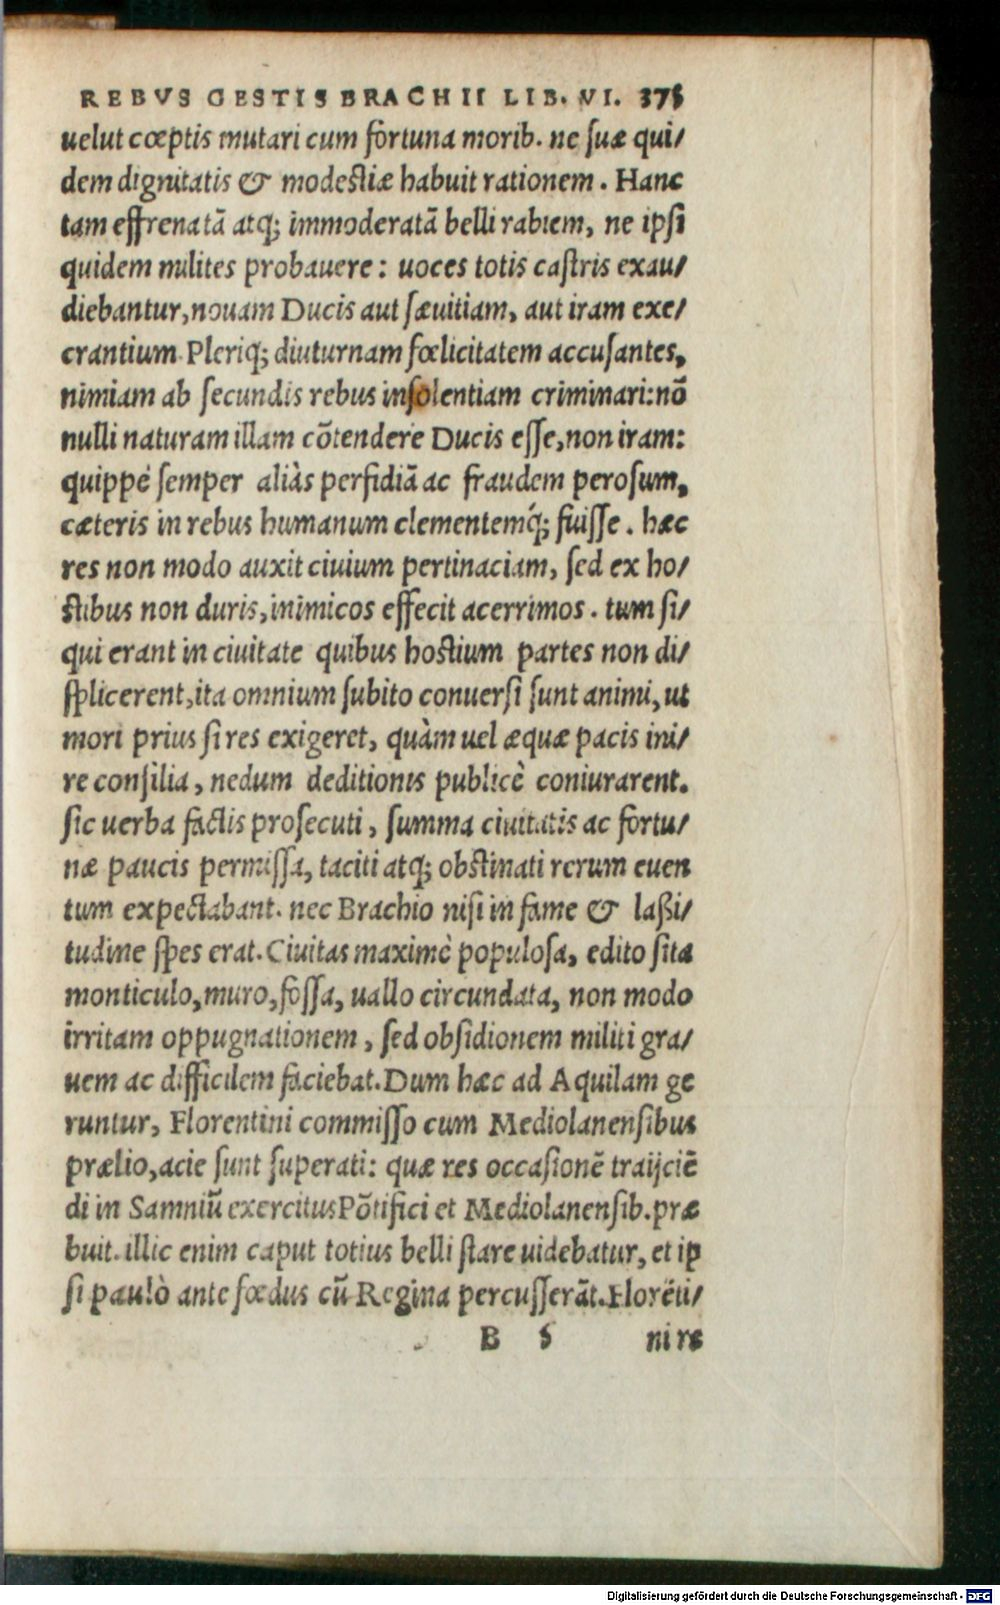 REBVS GESTIS BRACHII LIB. VI. 375
uelut cœptis mutari cum fortuna morib. ne ſuæ qui/
dem dignitatis & modeſtiæ habuit rationem. Hanc
tam effrenatā atq; immoderatā belli rabiem, ne ipſi
quidem milites probauere: uoces totis caſtris exau/
diebantur, nouam Ducis aut ſæuitiam, aut iram exe/
crantium. Pleriq; diuturnam fœlicitatem accuſantes,
nimiam ab ſecundis rebus inſolentiam criminari: nō
nulli naturam illam cōtendere Ducis eſſe, non iram:
quippe ſemper aliàs perfidiā ac fraudem peroſum,
cæteris in rebus humanum clementemq́; fuiſſe. hæc
res non modo auxit ciuium pertinaciam, ſed ex ho/
ſtibus non duris, inimicos effecit acerrimos. tum ſi/
qui erant in ciuitate quibus hoſtium partes non di/
ſplicerent, ita omnium ſubito conuerſi ſunt animi, ut
mori prius ſi res exigeret, quàm uel æquæ pacis ini/
re conſilia, nedum deditionis publicè coniurarent.
ſic uerba factis proſecuti, ſumma ciuitatis ac fortu/
næ paucis permiſſa, taciti atq; obſtinati rerum euen
tum expectabant. nec Brachio niſi in fame & laßi/
tudine ſpes erat. Ciuitas maximè populoſa, edito ſita
monticulo, muro, foſſa, uallo circundata, non modo
irritam oppugnationem, ſed obſidionem militi gra/
uem ac difficilem faciebat. Dum hæc ad Aquilam ge
runtur, Florentini commiſſo cum Mediolanenſibus
prælio, acie ſunt ſuperati: quæ res occaſionē traijciē
di in Samniū exercitus Pōtifici et Mediolanenſib. præ
buit. illic enim caput totius belli ſtare uidebatur, et ip
ſi paulò ante fœdus cū Regina percuſſerāt. Florēti/
B 5 ni re
Digitalisierung gefördert durch die Deutsche Forschungsgemeinschaft - DFG